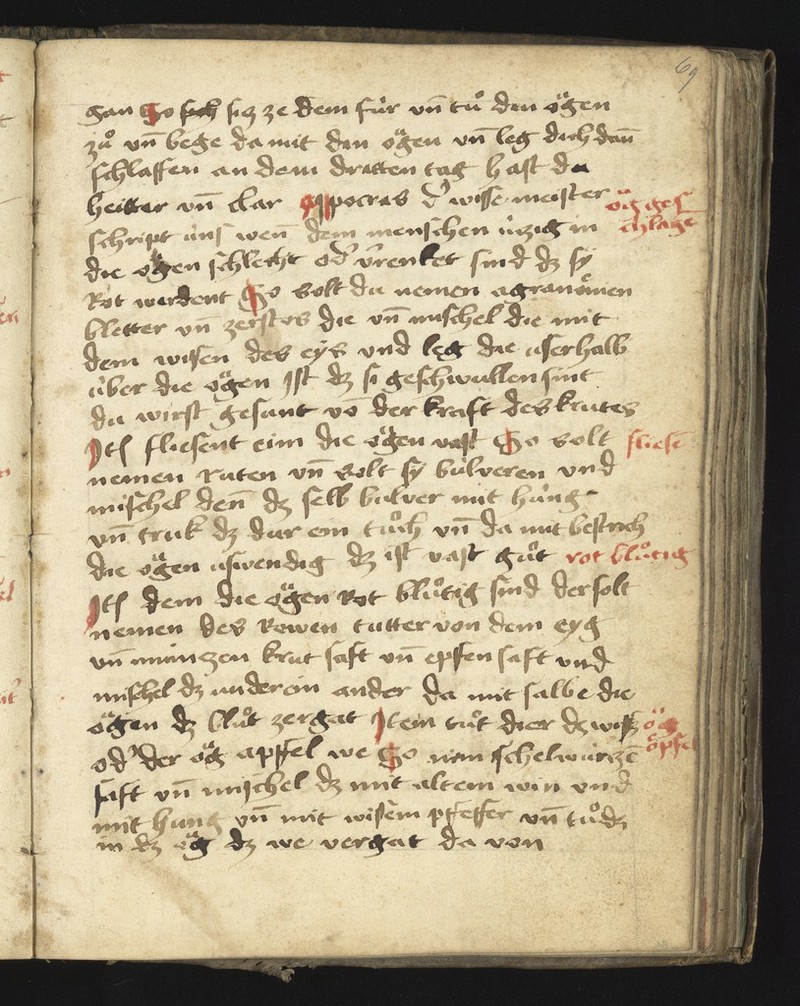 69
gan So sich siz ze dem für vn̄ tuͦ den oͤgen
zuͦ vn̄ bege da mit den oͤgen vn̄ leg dich dan̄
schlaffen an dem dritten tag hast du
heitter vn̄ clar yppocras d' wisse meister
oͤg ges
schript úns wen̄ dem menschen ützig in
chlage
die oͤgen schlecht od' v'renket sind dz sy
Rot werdent So solt du nemen agramoͤnien
bletter vn̄ zerstos die vn̄ mischel die mit
dem wisen des eys vnd leg die userhalb
über die oͤgen Ist dz si geschwullen sint
du wirst gesunt vō der kraft des krutes
Itē fliesent eim die oͤgen vast So solt
fliesē
nemen ruten vn̄ solt sy bulveren vnd
mischel den̄ dz selb bulver mit hung
vn̄ truk dz dur ein tuͦch vn̄ da mit bestrich
die oͤgen uswendig dz ist vast guͦt
rot bluͦtig
Itē dem die oͤgen Rot bluͦtig sind der solt
nemen des Rowen tutter von dem eyg
vn̄ muntzen krut saft vn̄ epfen saft vnd
mischel dz under ein ander da mit salbe die
oͤgen dz bluͦt zergat Item tuͦt dier dz wiss
oͤg
od' der oͤg apffel we So nim schelwurtzē
oͤpfel
saft vn̄ mischel dz mit altem win vnd
mit hung vn̄ mit wisem pfeffer vn̄ tuͦ dz
in dz oͤg dz we vergat da von